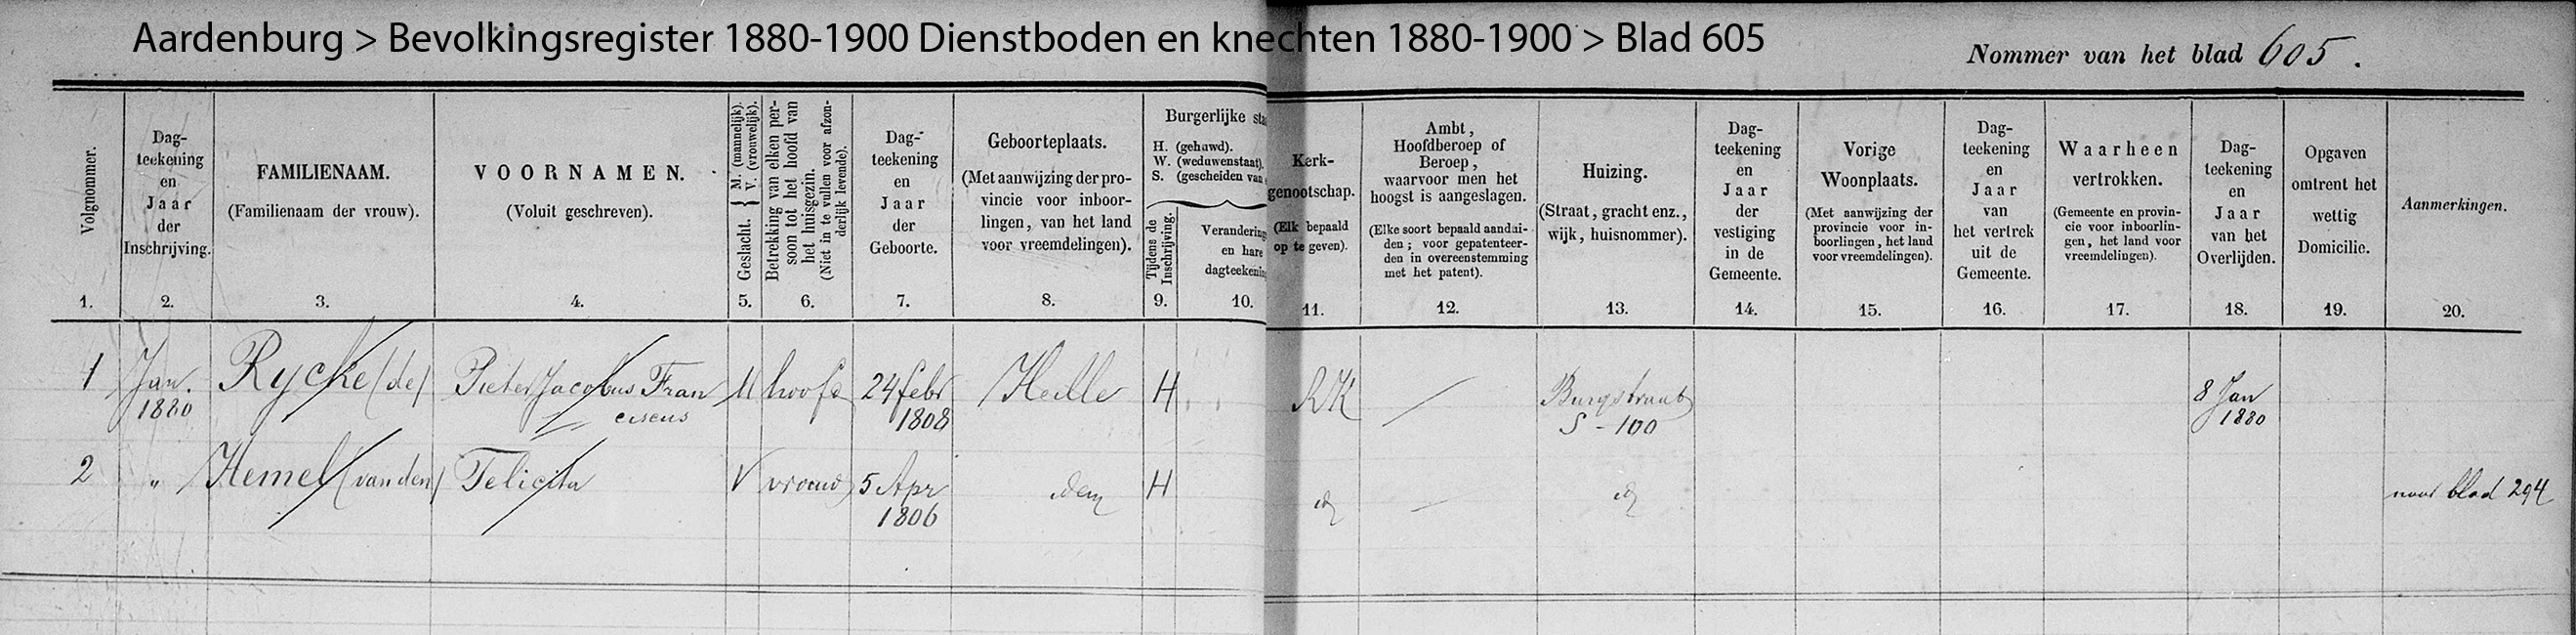 Aardenburg > Bevolkingsregister 1880-1900 Dienstboden en knechten 1880-1900 > Blad 605
Nommer van het blad 605.
Volgnommer.
1.
Dag-
teekening
en
Jaar
der
Inschrijving.
2.
FAMILIENAAM.
(Familienaam der vrouw).
3.
VOORNAMEN.
(Voluit geschreven).
4.
Geslacht. { M. (mannelijk).
V. (vrouwelijk).
5.
Betrekking van elken per-
soon tot het hoofd van
het huisgezin.
(Niet in te vullen voor afzon-
derlijk levende).
6.
Dag-
teekening
en
Jaar
der
Geboorte.
7.
Geboorteplaats.
(Met aanwijzing der pro-
vincie voor inboor-
lingen, van het land
voor vreemdelingen).
8.
Burgerlijke sta
H. (gehuwd).
W. (weduwenstaat).
S. (gescheiden van
Tijdens de
Inschrijving.
9.
Verandering
en hare
dagteekenin
10.
Kerk-
genootschap.
(Elk bepaald
op te geven).
11.
Ambt,
Hoofdberoep of
Beroep,
waarvoor men het
hoogst is aangeslagen.
(Elke soort bepaald aandui-
den; voor gepatenteer-
den in overeenstemming
met het patent).
12.
Huizing.
(Straat, gracht enz.,
wijk, huisnommer).
13.
Dag-
teekening
en
Jaar
der
vestiging
in de
Gemeente.
14.
Vorige
Woonplaats.
(Met aanwijzing der
provincie voor in-
boorlingen, het land
voor vreemdelingen).
15.
Dag-
teekening
en
Jaar
van
het vertrek
uit de
Gemeente.
16.
Waarheen
vertrokken.
(Gemeente en provin-
cie voor inboorlin-
gen, het land voor
vreemdelingen).
17.
Dag-
teekening
en
Jaar
van het
Overlijden.
18.
Opgaven
omtrent het
wettig
Domicilie.
19.
Aanmerkingen.
20.
1 Jan. Rycke (de) Pieter Jacobus Fran M hoofd 24 febr Heille H RK Burgstraat 8 Jan
1880 ciscus 1808 S - 100 1880
2 " Hemel (van den) Felicita V vrouw 5 Apr idem H id id naar blad 294
1806